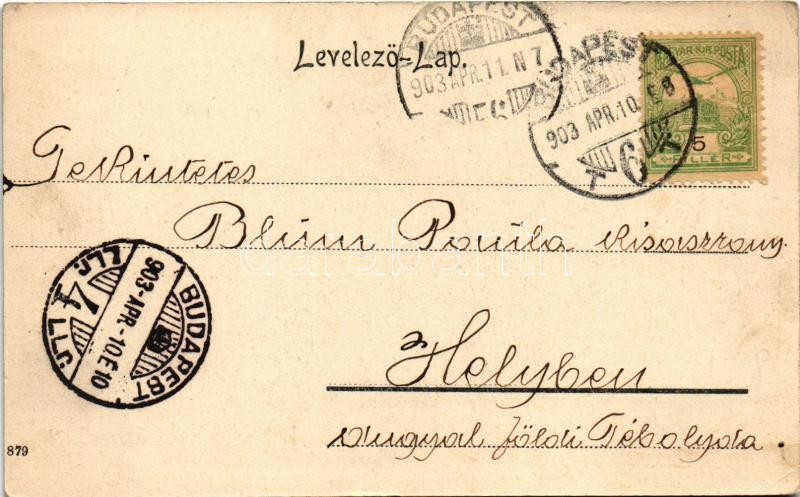 Levelező-Lap.
BUDAPEST
903 APR. 11. N 7
BUDAPEST
903 APR. 10.
6
T
MAGYAR KIR. POSTA
5
FILLÉR
Tekintetes
Blum Paula kisasszony
BUDAPEST
903-APR-10.E10
Helyben
földi Tébolyda
879